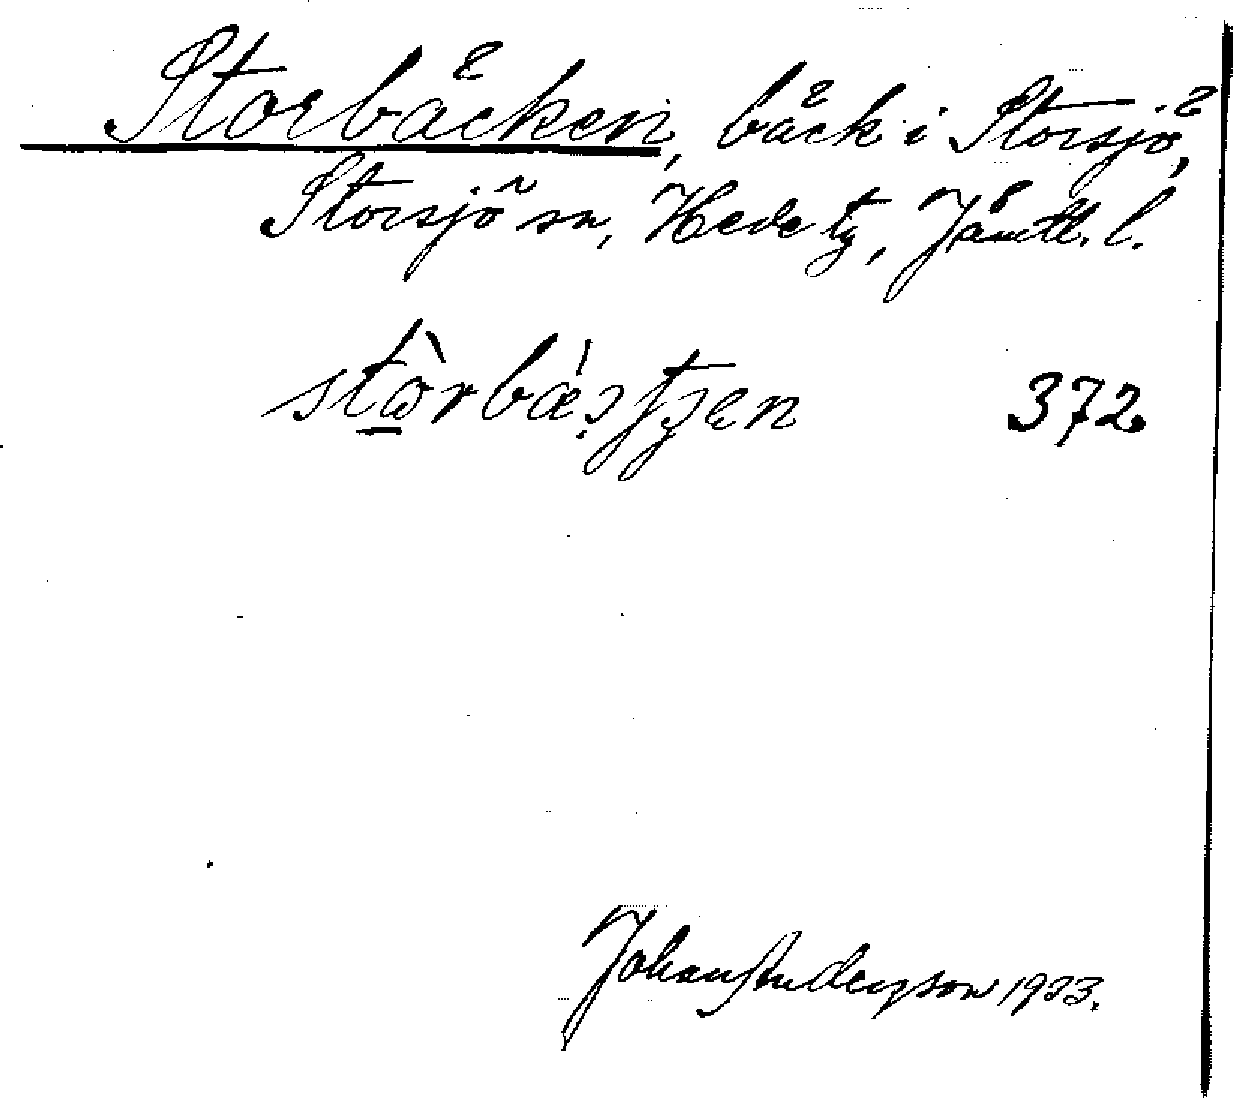 Storbäcken, bäck i Storsjö,
Storsjö sn, Hede tg, Jämtl. l.
372.
Johan Anderson 1933.